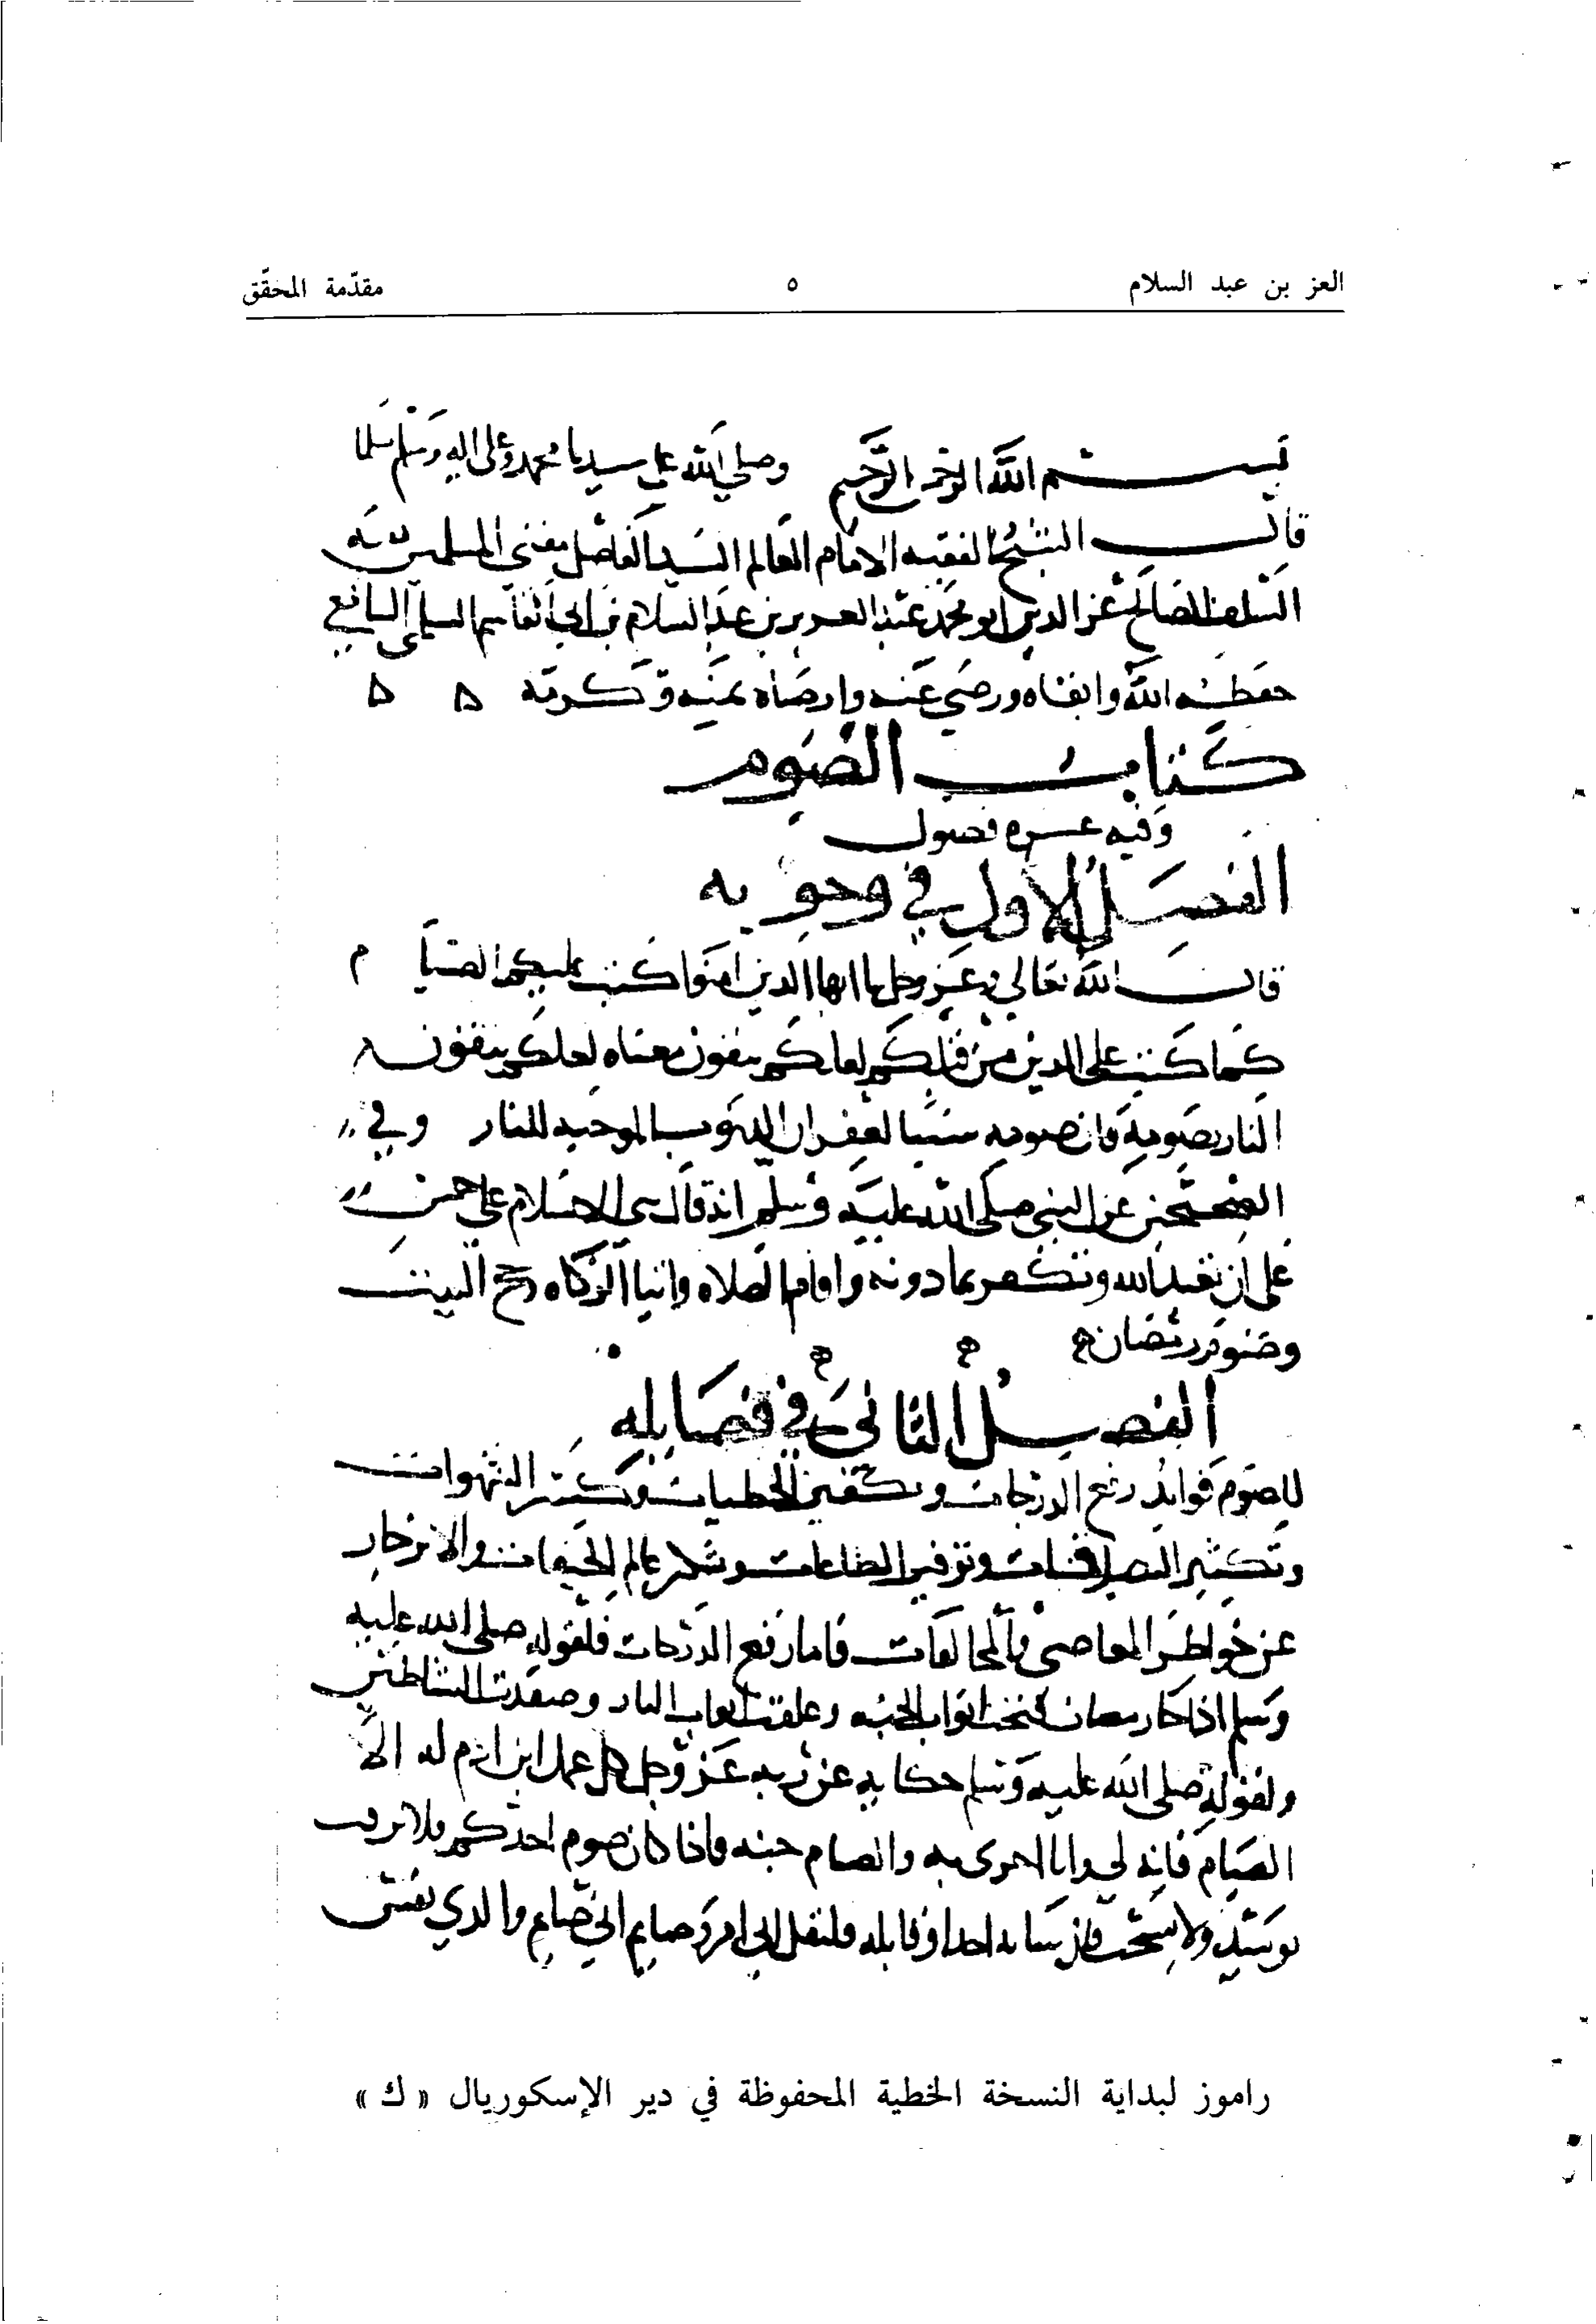 العز بن عبد السلام ٥ مقدّمة المحقّق
بسم الله الرحمن الرحيم وصلى الله على سيدنا محمد وعلى اله وسلم تسلما
قال الشيخ الفقيه الامام العالم السيد الفاضل مفتى المسلمين بقيه
السلف الصالح عز الدين ابو محمد عبد العزيز بن عبد السلام بن ابي القاسم السلمي الشافعي
حفظه الله وابقاه ورضي عنه وارضاه بمنه وكرمه
كتاب الصوم
وفيه عشره فصول
الفصل الاول في وجوبه
قال الله تعالى عز وجل يا ايها الذين امنوا كتب عليكم الصيام
كما كتب على الذين من قبلكم لعلكم تتقون معناه لعلكم تتقون
النار بصومه فان صومه سببا لغفران الذنوب الموجبه للنار وفي
الصحيحين عن النبي صلى الله عليه وسلم انه قال بني الاسلام على خمس
على ان تعبد الله وتكفر بما دونه واقام الصلاه وايتا الزكاه وحج البيت
وصوم رمضان
الفصل الثاني في فضايله
للصوم فوايد رفع الدرجات وتكفير الخطيات وكسر الشهوات
وتكثير الصدقات وتوفير الطاعات وشكر عالم الخفيات والانزجار
عن خواطر المعاصي والمخالفات فاما رفع الدرجات فلقوله صلى الله عليه
وسلم اذا جا رمضان فتحت ابواب الجنه وغلقت ابواب النار وصفدت الشياطين
ولقوله صلى الله عليه وسلم حكايه عن ربه عز وجل كل عمل ابن ادم له الا
الصيام فانه لي وانا اجزى به والصيام جنه فاذا كان صوم احدكم فلا يرفث
يوميذ ولا يسخب فان سابه احد او قاتله فليقل اني امرؤ صايم اني صايم والذي نفس
راموز لبداية النسخة الخطية المحفوظة في دير الإسكوريال « ك »